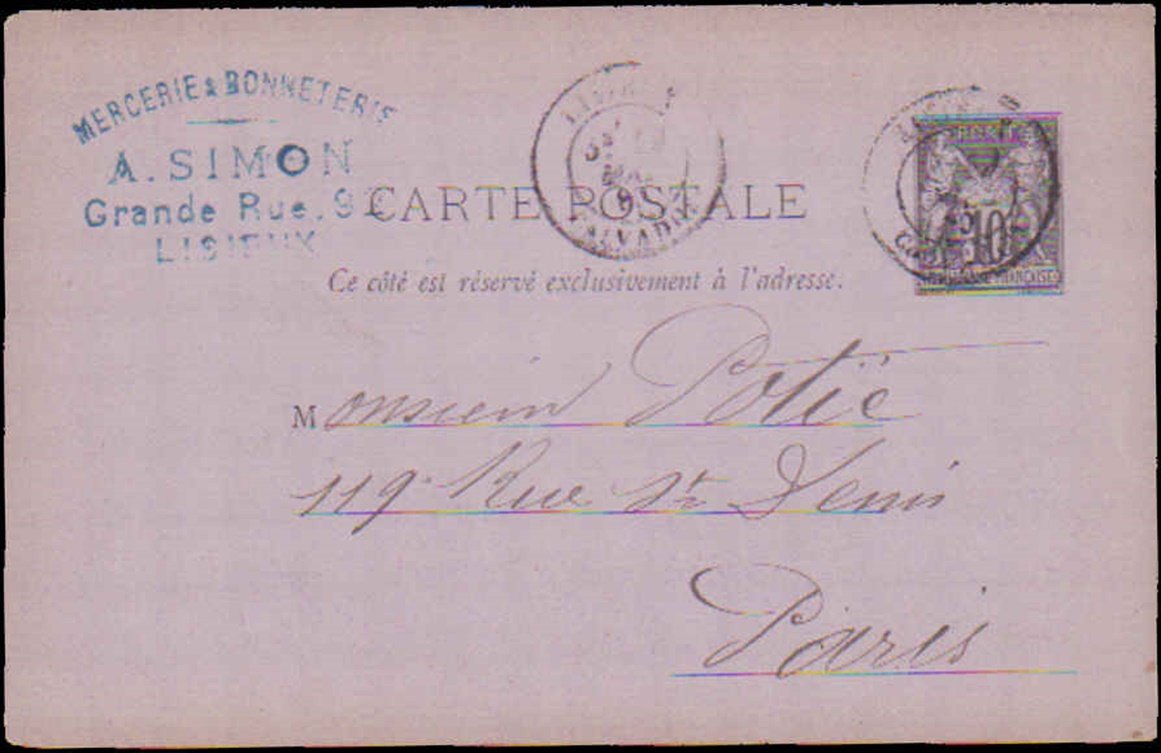 MERCERIE & BONNETERIE
A. SIMON
Grande Rue.
LISIEUX
CARTE POSTALE
CALVADOS
10
Ce côté est réservé exclusivement à l'adresse.
Monsieur Potié
119. Rue St Denis
Paris